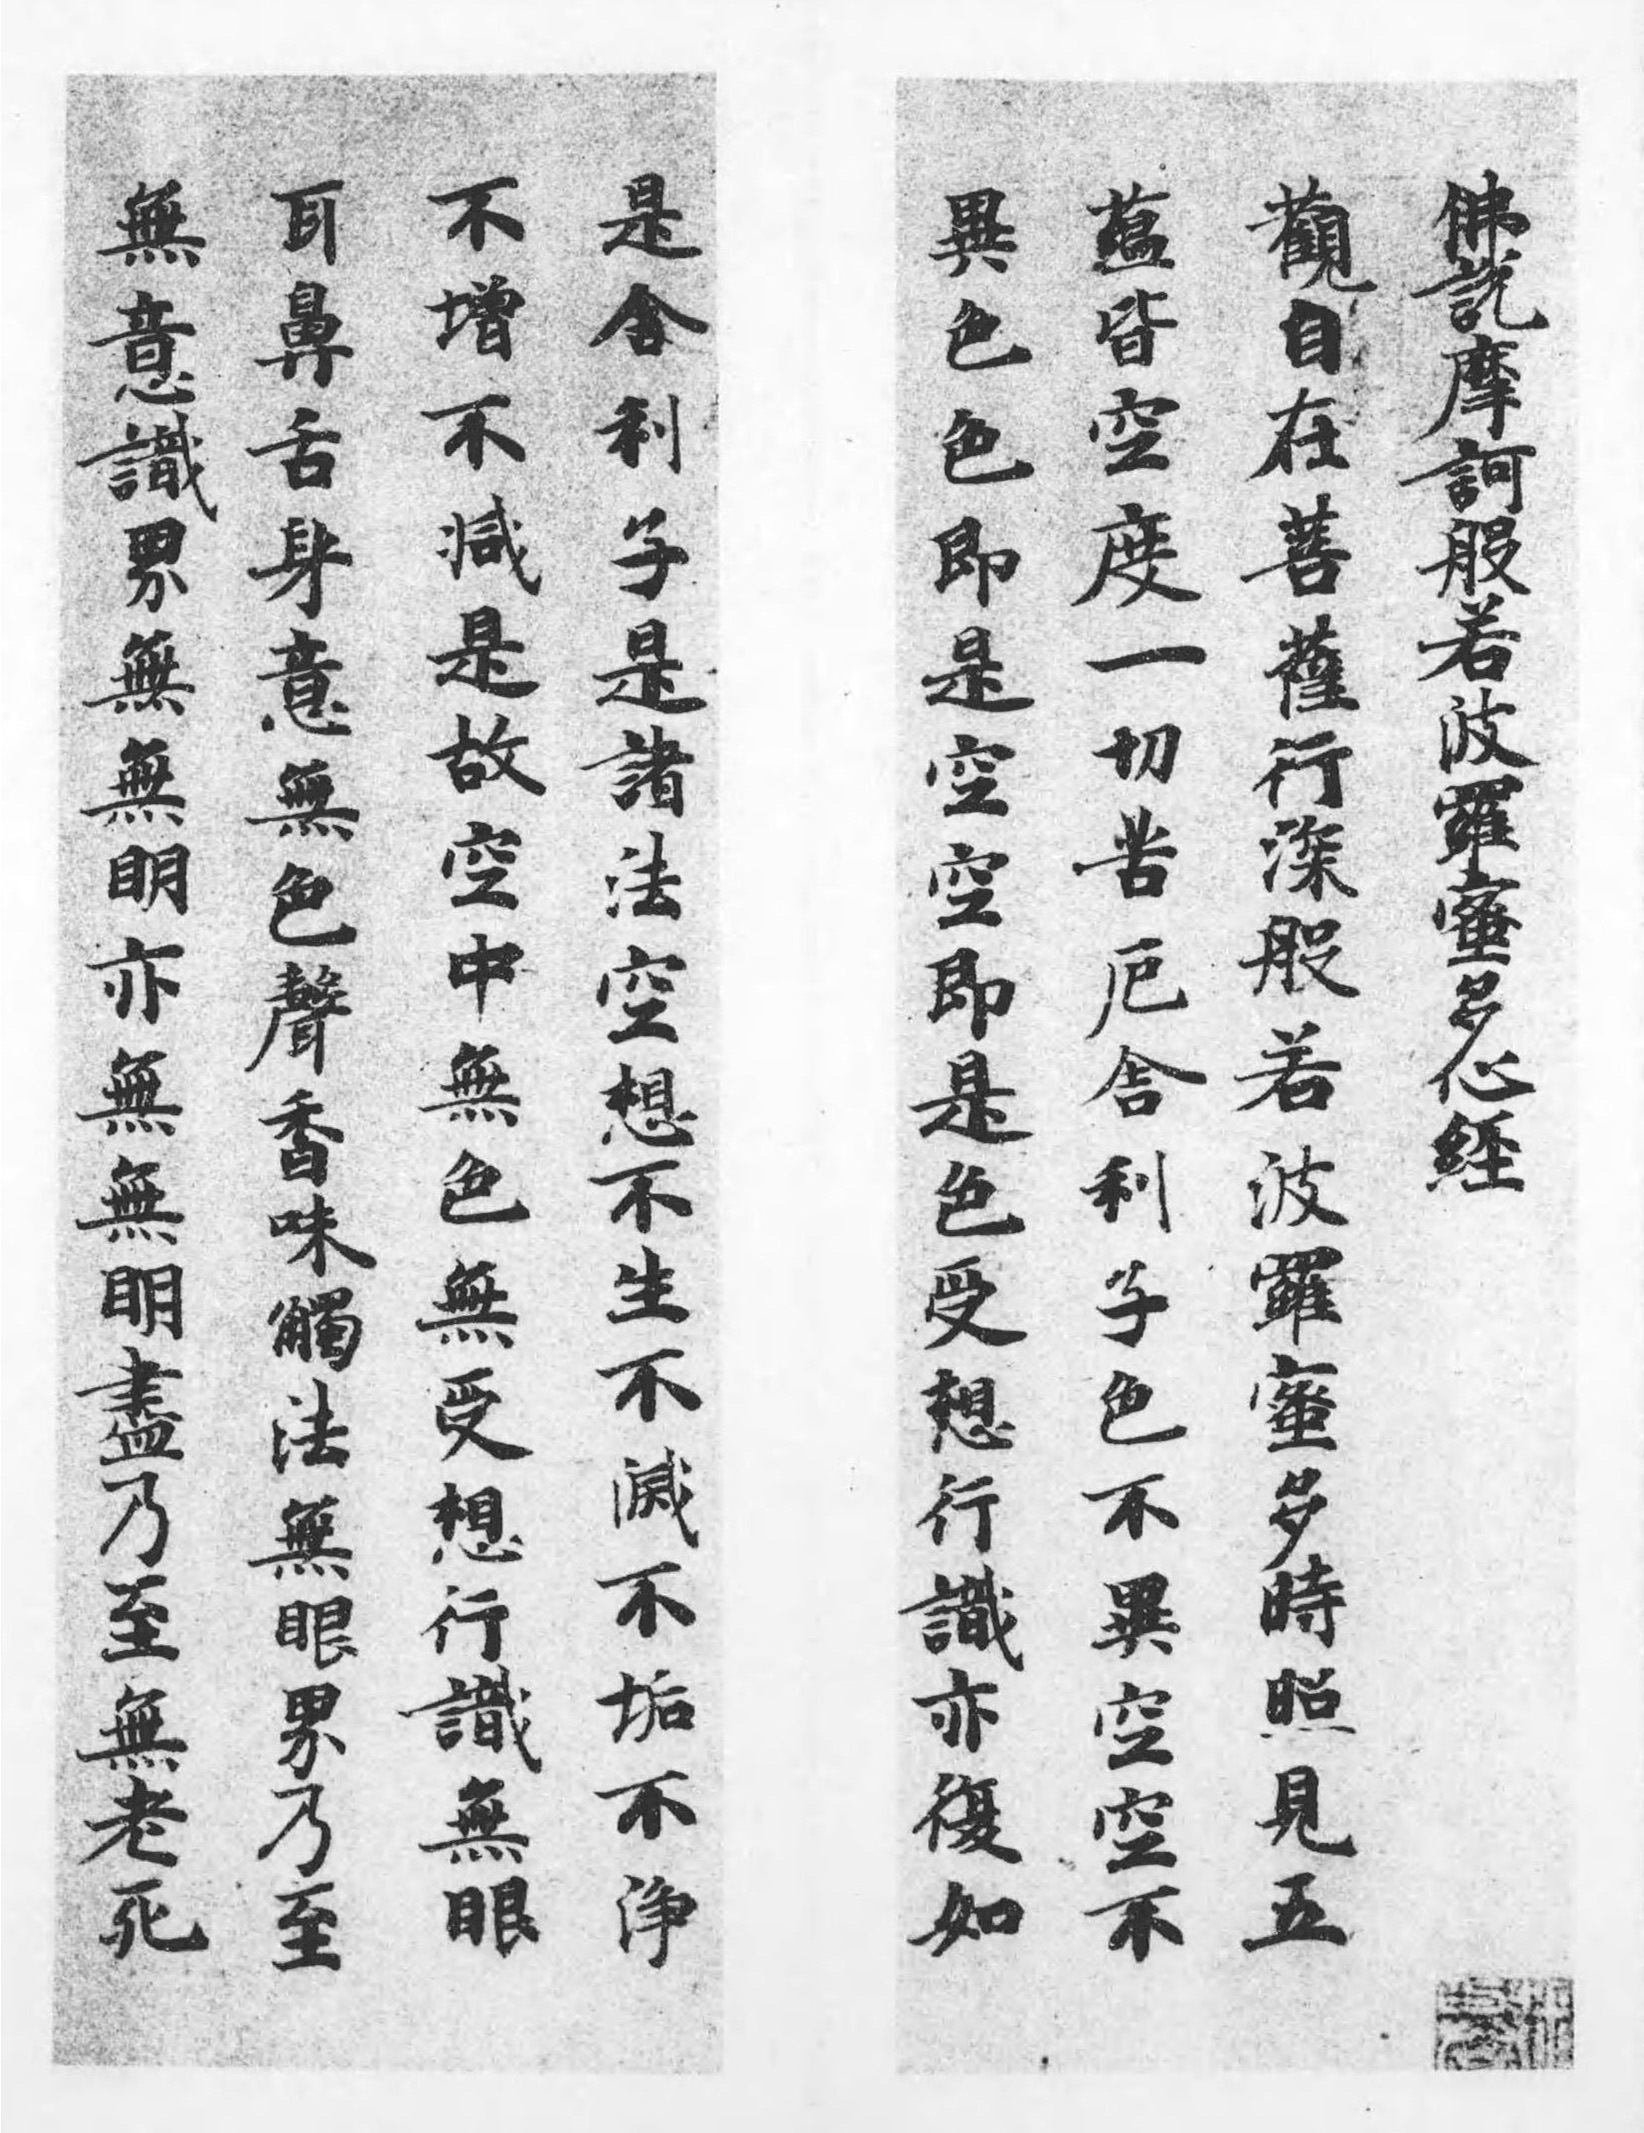 佛說摩訶般若波羅蜜多心經
觀自在菩薩行深般若波羅蜜多時照見五
蘊皆空度一切苦厄舍利子色不異空空不
異色色即是空空即是色受想行識亦復如
是舍利子是諸法空想不生不滅不垢不淨
不增不減是故空中無色無受想行識無眼
耳鼻舌身意無色聲香味觸法無眼界乃至
無意識界無無明亦無無明盡乃至無老死